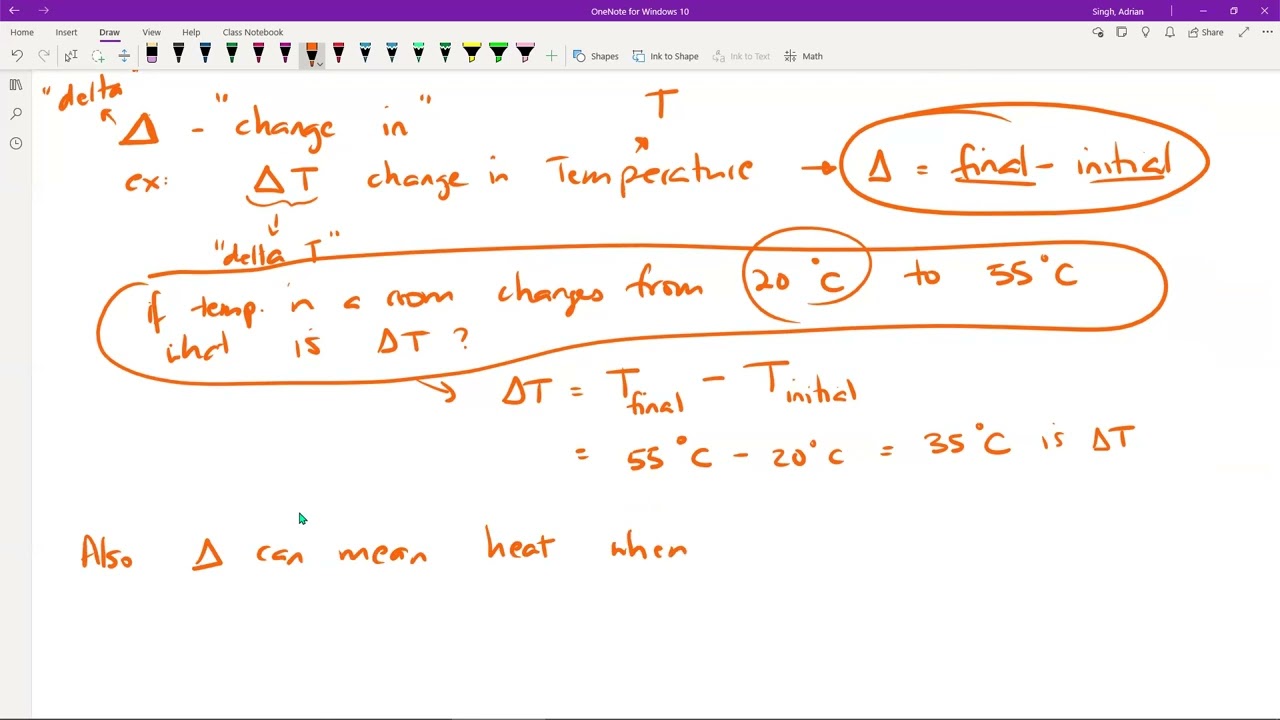 OneNote for Windows 10
Singh, Adrian
Home Insert Draw View Help Class Notebook
Share
Shapes Ink to Shape Ink to Text Math
"delta"
Δ - "change in"
T
ex: ΔT change in Temperature → Δ = final - initial
"delta T"
if temp. in a room changes from 20°C to 55°C
what is ΔT?
ΔT = Tfinal - Tinitial
= 55°C - 20°C = 35°C is ΔT
Also Δ can mean heat when